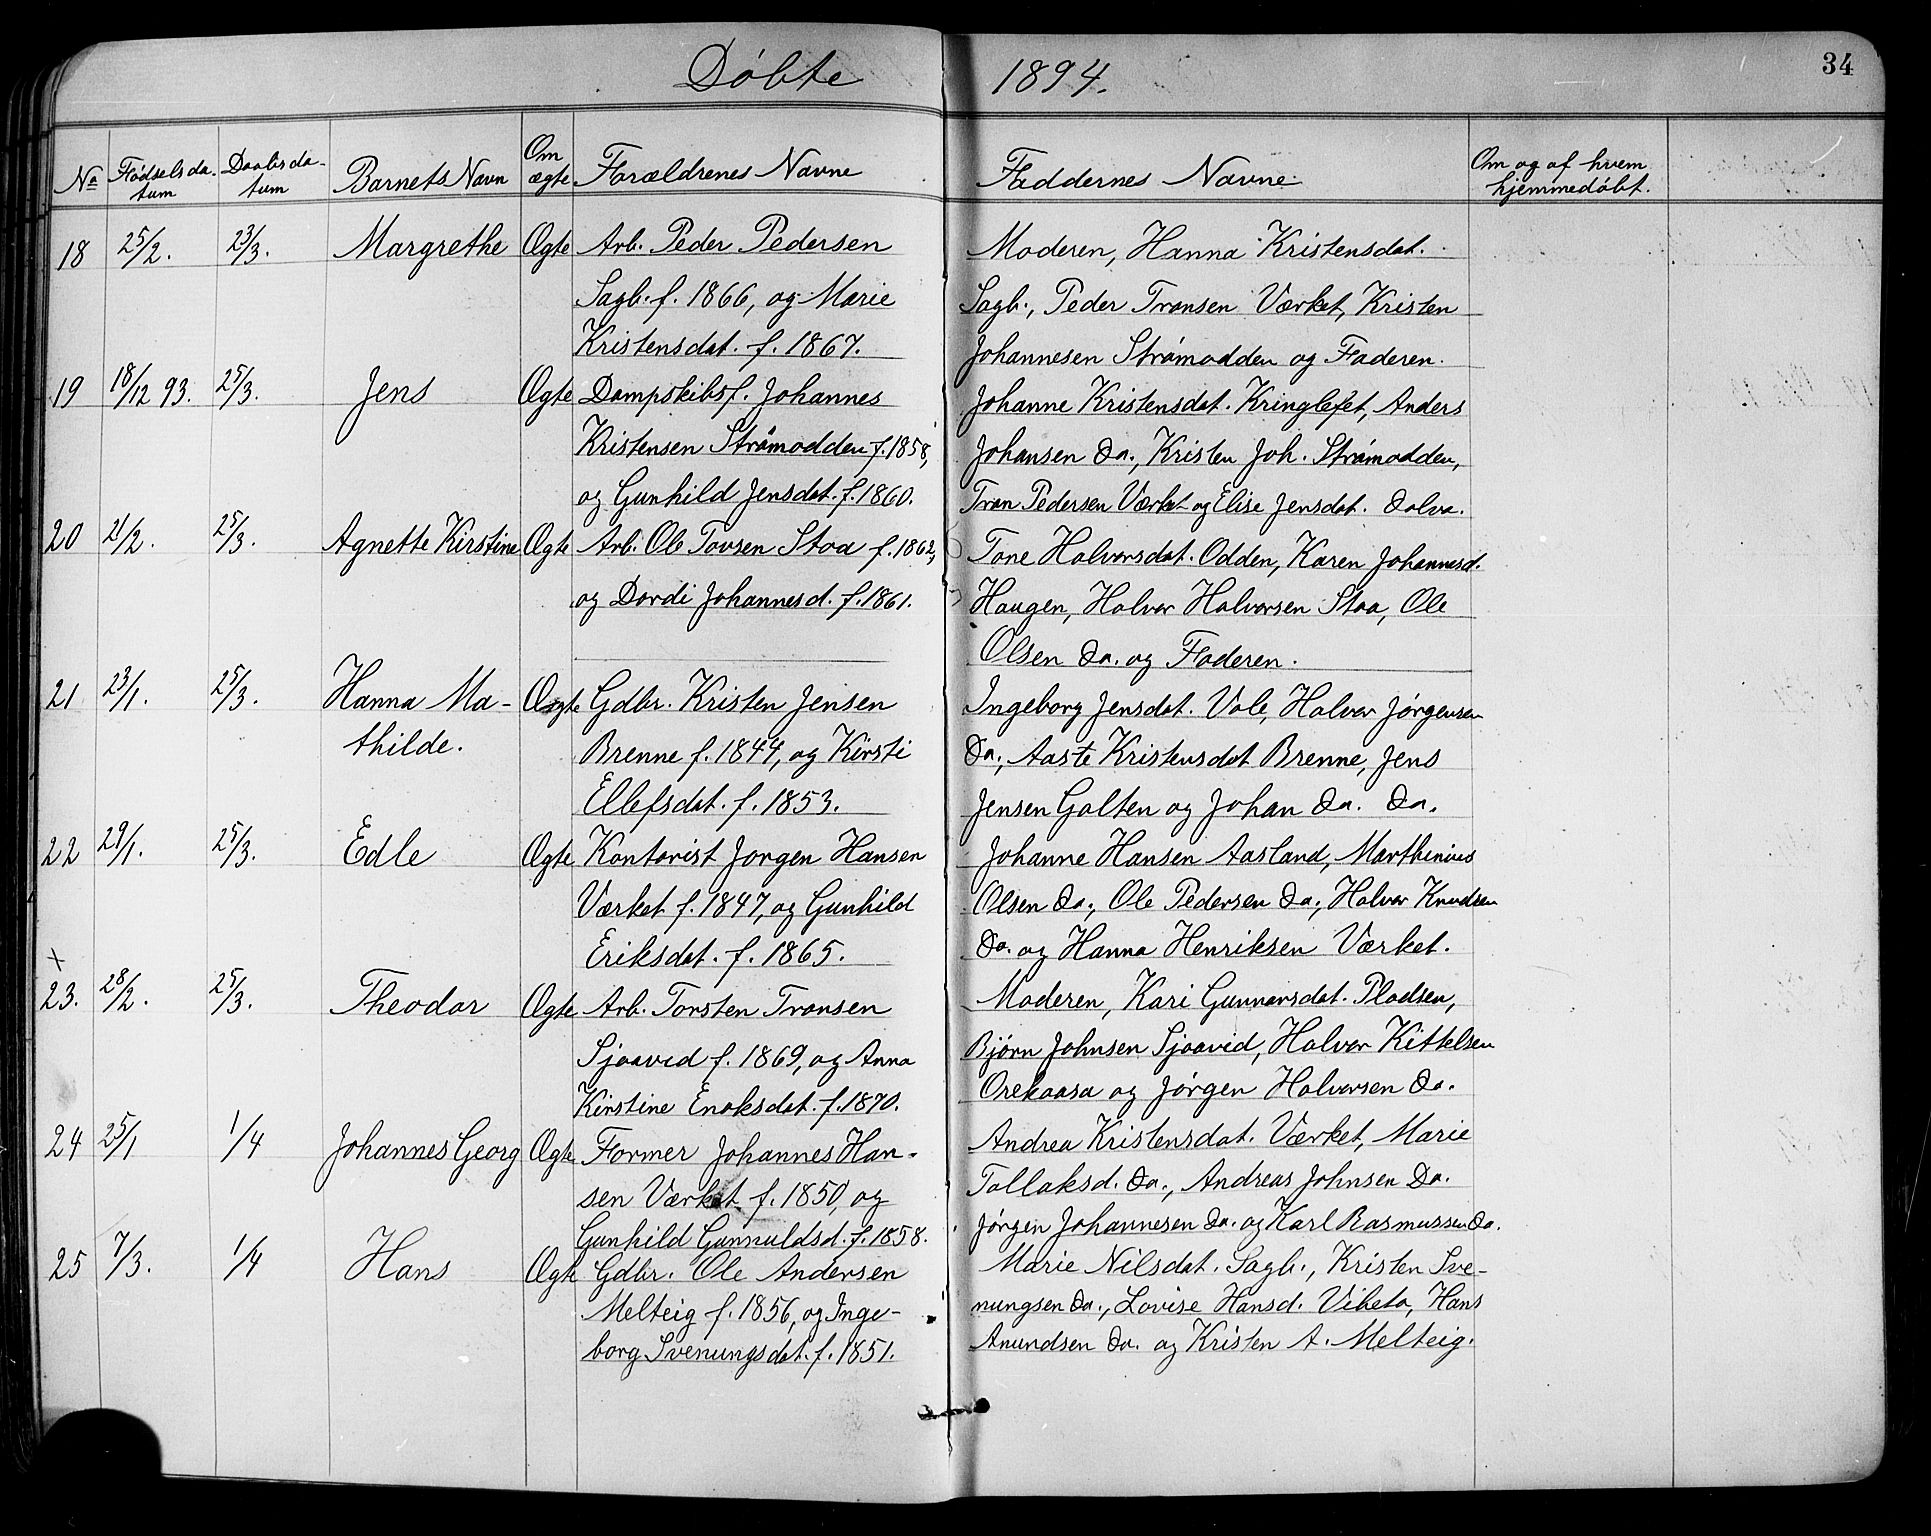 Døbte 1894. 34
No Fødselsda- Daabsda- Barnets Navn Om Forældrenes Navne Faddernes Navne. Om og af hvem
tum tum ægte hjemmedøbt.
18 25/2. 23/3. Margrethe Ægte Arb. Peder Pedersen Moderen, Hanna Kristensdat.
Sagb. f. 1866, og Marie Sagb., Peder Tronsen Værket, Kristen
Kristensdat. f. 1867. Johannesen Strømodden og Faderen.
19 18/12 93. 25/3. Jens Ægte Dampskibsf. Johannes Johanne Kristensdat. Kringlefet, Anders
Kristensen Strømodden f. 1858, Johansen Do., Kristen Joh. Strømodden,
og Gunhild Jensdat. f. 1860. Tron Pedersen Værket og Elise Jensdat. Dalva.
20 21/2. 25/3. Agnette Kirstine Ægte Arb. Ole Tovsen Stoa f. 1862, Tone Halvorsdat. Odden, Karen Johannesd.
og Dordi Johannesd. f. 1861. Haugen, Halvor Halvorsen Stoa, Ole
Olsen Do. og Faderen.
21 23/1. 25/3. Hanna Ma- Ægte Gdbr. Kristen Jensen Ingeborg Jensdat. Vole, Halvor Jørgensen
thilde. Brenne f. 1844, og Kirsti Do., Aaste Kristensdat Brenne, Jens
Ellefsdat. f. 1853. Jensen Galten og Johan Do. Do.
22 29/1. 25/3. Edle Ægte Kontorist Jørgen Hansen Johanne Hansen Aasland, Marthinius
Værket f. 1847, og Gunhild Olsen Do., Ole Pedersen Do., Halvor Knudsen
Eriksdat. f. 1865. Do. og Hanna Henriksen Værket.
x
23. 28/2. 25/3. Theodor Ægte Arb. Torsten Tronsen Moderen, Kari Gunnarsdat. Pladsen,
Sjoavid f. 1869, og Anna Bjørn Johnsen Sjoavid, Halvor Kittelsen
Kirstine Enoksdat. f. 1870. Orekaasa og Jørgen Halvorsen Do.
24 25/1 1/4 Johannes Georg Ægte Former Johannes Han- Andrea Kristensdat. Værket, Marie
sen Værket f. 1850, og Tollaksd. Do., Andreas Johnsen Do.
Gunhild Gunnuldsd. f. 1858. Jørgen Johannesen Do. og Karl Rasmussen Do.
25 7/3. 1/4 Hans Ægte Gdbr. Ole Andersen Marie Nilsdat. Sagb., Kristen Sve-
Melteig f. 1856, og Inge- nungsen Do., Lovise Hansd. Viheta, Hans
borg Svenungsdat. f. 1851. Anundsen Do. og Kristen A. Melteig.